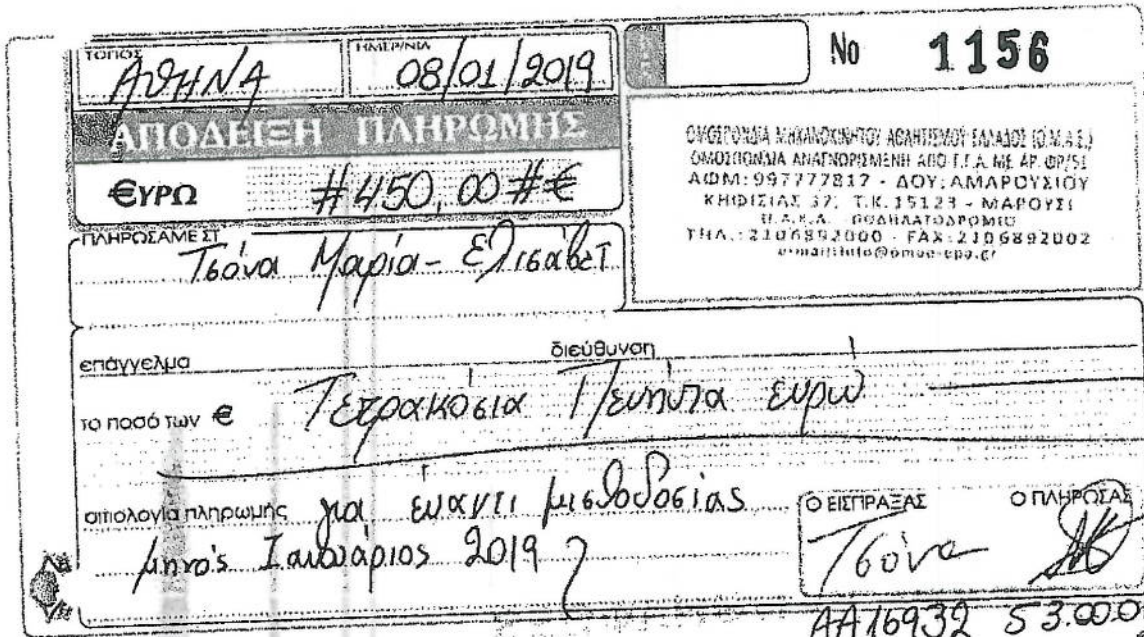 ΤΟΠΟΣ
ΑΘΗΝΑ
ΗΜΕΡ/ΝΙΑ
08/01/2019
No 1156
ΑΠΟΔΕΙΞΗ ΠΛΗΡΩΜΗΣ
€ΥΡΩ #450,00#€
ΟΜΟΣΠΟΝΔΙΑ ΜΗΧΑΝΟΚΙΝΗΤΟΥ ΑΘΛΗΤΙΣΜΟΥ ΕΛΛΑΔΟΣ (Ο.Μ.Α.Ε.)
ΟΜΟΣΠΟΝΔΙΑ ΑΝΑΓΝΩΡΙΣΜΕΝΗ ΑΠΟ Γ.Γ.Α. ΜΕ ΑΡ. ΦΡ/51
ΑΦΜ: 997777817 - ΔΟΥ: ΑΜΑΡΟΥΣΙΟΥ
ΚΗΦΙΣΙΑΣ 37, Τ.Κ. 15123 - ΜΑΡΟΥΣΙ
Ο.Α.Κ.Α. ΠΟΔΗΛΑΤΟΔΡΟΜΙΟ
ΤΗΛ.: 2106892000 - FAX: 2106892002
ΠΛΗΡΩΣΑΜΕ ΣΤ
Τσόνα Μαρία - Ελισάβετ
επάγγελμα
διεύθυνση
το ποσό των € Τετρακόσια Πενήντα ευρώ
αιτιολογία πληρωμής για έναντι μισθοδοσίας
μηνός Ιανουάριος 2019
Ο ΕΙΣΠΡΑΞΑΣ
Ο ΠΛΗΡΩΣΑΣ
Τσόνα
ΑΑ16932 53.00.0